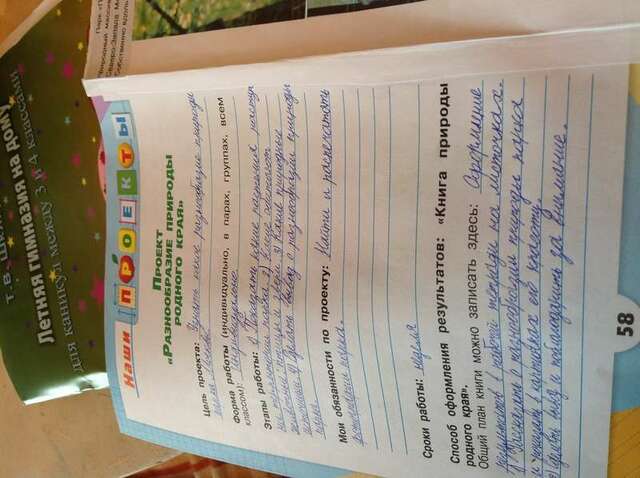 Т.В. Шкл
Летняя гимназия на дому
для каникул между 3 и 4 классами
Парк «П
Природный масси
Северо-Запада М
Собственно вдоль
Наши ПРОЕКТЫ
ПРОЕКТ
«РАЗНООБРАЗИЕ ПРИРОДЫ
РОДНОГО КРАЯ»
Цель проекта: Узнать какое разнообразие природы
парка
Форма работы (индивидуально, в парах, группах, всем
классом): Индивидуально.
Этапы работы: 1) Показать какие растения растут
на территории парка. 2) Какие обитают
животные: птицы и звери. 3) Какие природные
источники. 4) Сделать вывод о разнообразии природы
парка.
Мои обязанности по проекту: Найти и распечатать
фотографии парка.
Сроки работы: неделя
Способ оформления результатов: «Книга природы
родного края».
Общий план книги можно записать здесь: Оформление
результатов в рабочей тетради на листочках.
1) Рассказать о разнообразии природы парка
и показать в карточках его красоту.
2) Сделать вывод и поблагодарить за внимание.
58